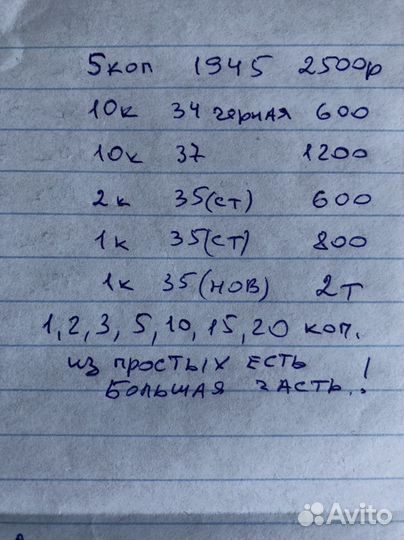 5коп 1945 2500р
10к 34 черная 600
10к 37 1200
2к 35(ст) 600
1к 35(ст) 800
1к 35(нов) 2т
1, 2, 3, 5, 10, 15, 20 коп.
из простых есть
большая часть..!
Avito